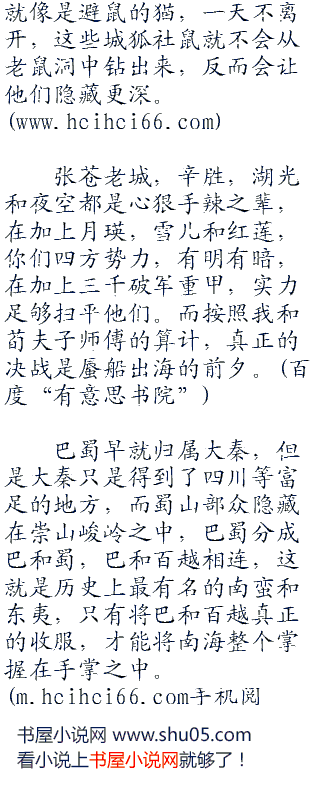 就像是避鼠的猫，一天不离
开，这些城狐社鼠就不会从
老鼠洞中钻出来，反而会让
他们隐藏更深。
(www.hcihci66.com)
张苍老城，辛胜，湖光
和夜空都是心狠手辣之辈，
在加上月瑛，雪儿和红莲，
你们四方势力，有明有暗，
在加上三千破军重甲，实力
足够扫平他们。而按照我和
荀夫子师傅的算计，真正的
决战是蜃船出海的前夕。(百
度“有意思书院”)
巴蜀早就归属大秦，但
是大秦只是得到了四川等富
足的地方，而蜀山部众隐藏
在崇山峻岭之中，巴蜀分成
巴和蜀，巴和百越相连，这
就是历史上最有名的南蛮和
东夷，只有将巴和百越真正
的收服，才能将南海整个掌
握在手掌之中。
(m.hcihci66.com手机阅
书屋小说网 www.shu05.com
看小说上书屋小说网就够了！